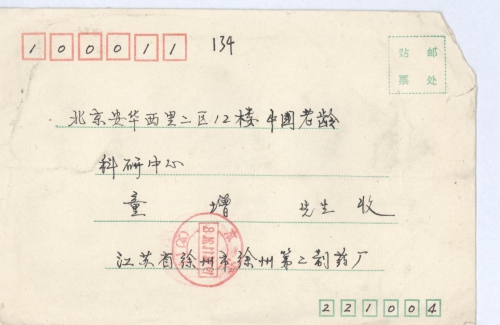 100011 134
贴 邮
票 处
北京安华西里二区12楼中国老龄
科研中心
童 增 先生 收
江苏省徐州市徐州第二制药厂
221004